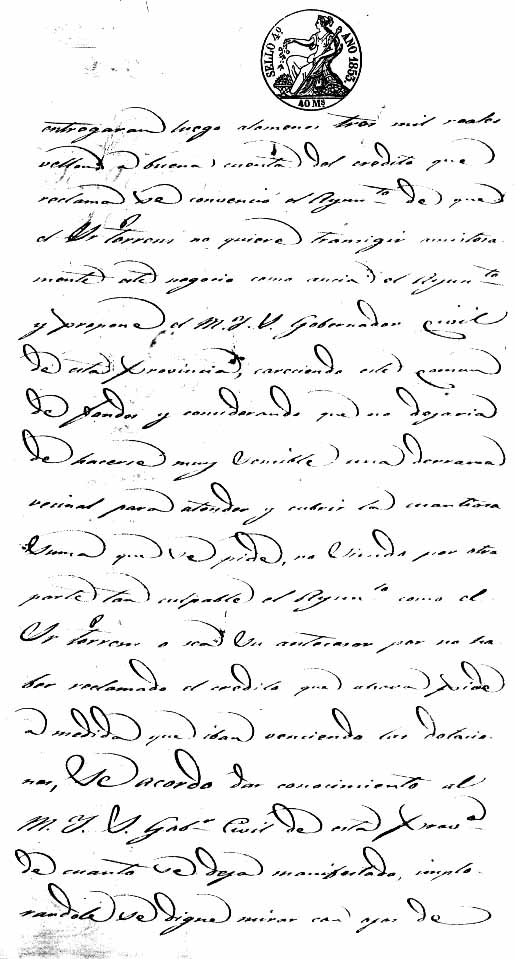 SELLO 4º AÑO 1855.
40 Mˢ
entregaran luego alomenos tres mil reales
vellon a buena cuenta del credito que
reclama se convenció el Ayunᵗᵒ de que
el Sʳ Torrens no quiere transigir amistosa
mente este negocio como ancia el Ayunᵗᵒ
y propone el M. Y. S. Gobernador Civil
de esta Provincia, careciendo este Comun
de fondos y considerando que no dejaria
de hacerse muy sensible una derrama
vecinal para atender y cubrir la cuantiosa
suma que se pide, no siendo por otra
parte tan culpable el Ayunᵗᵒ como el
Sʳ Torrens o sea su antecesor por no ha
ber reclamado el credito que ahora pide
a medida que iban venciendo las dotacio
nes, Se acordo dar conocimiento al
M. Y. S. Gobʳ Civil de esta Provᵃ
de cuanto se deja manifestado, implo
randole se digne mirar con ojos de